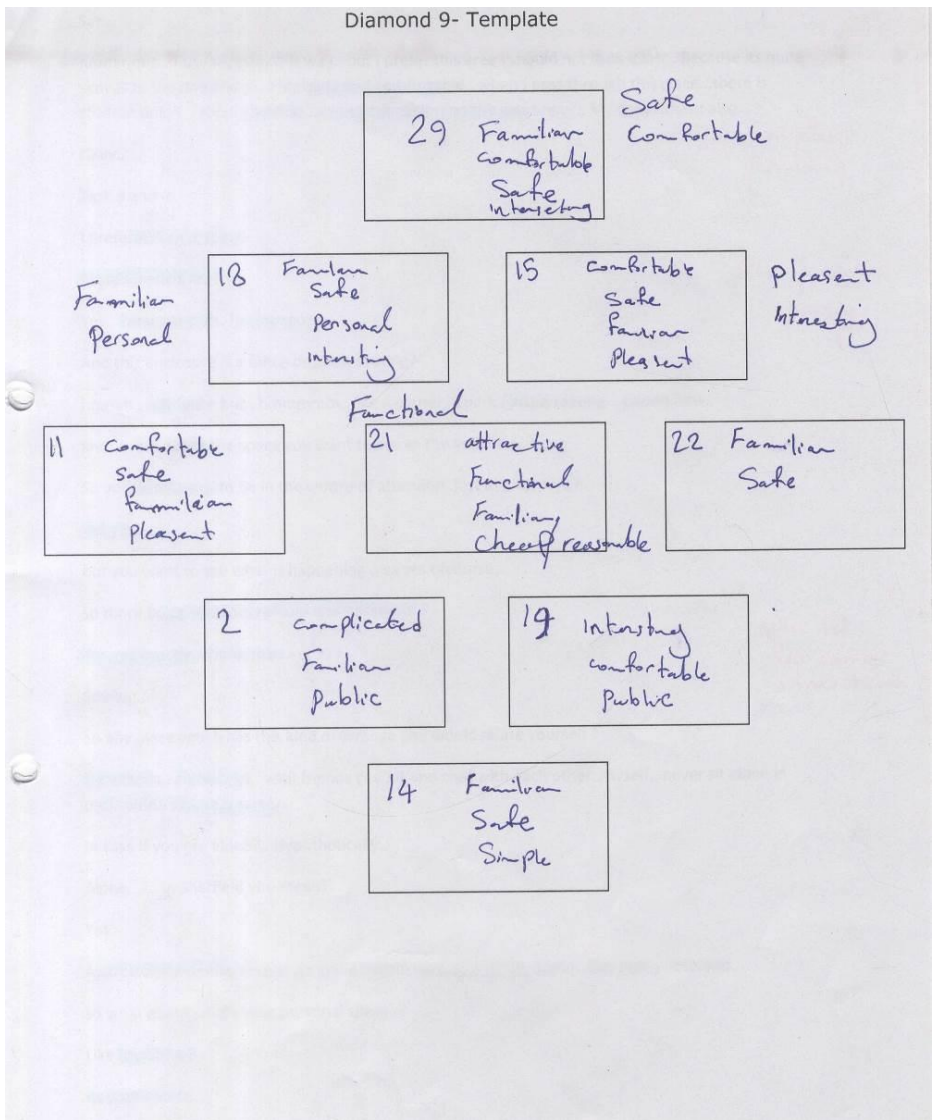 Diamond 9- Template
Safe
Comfortable
29 Familiar
Comfortable
Safe
interseting
Fammilian
Personal
18 Familan
Safe
Personal
intersting
15 comfortable
Safe
familian
Pleasent
pleasent
Interesting
Functional
11 Comfortable
safe
fammileian
Pleasent
21 attractive
Functional
Familiary
Cheep reasonable
22 Familian
Safe
2 complicated
Familian
Public
19 intersting
comfortable
Public
14 Familian
Safe
Simple